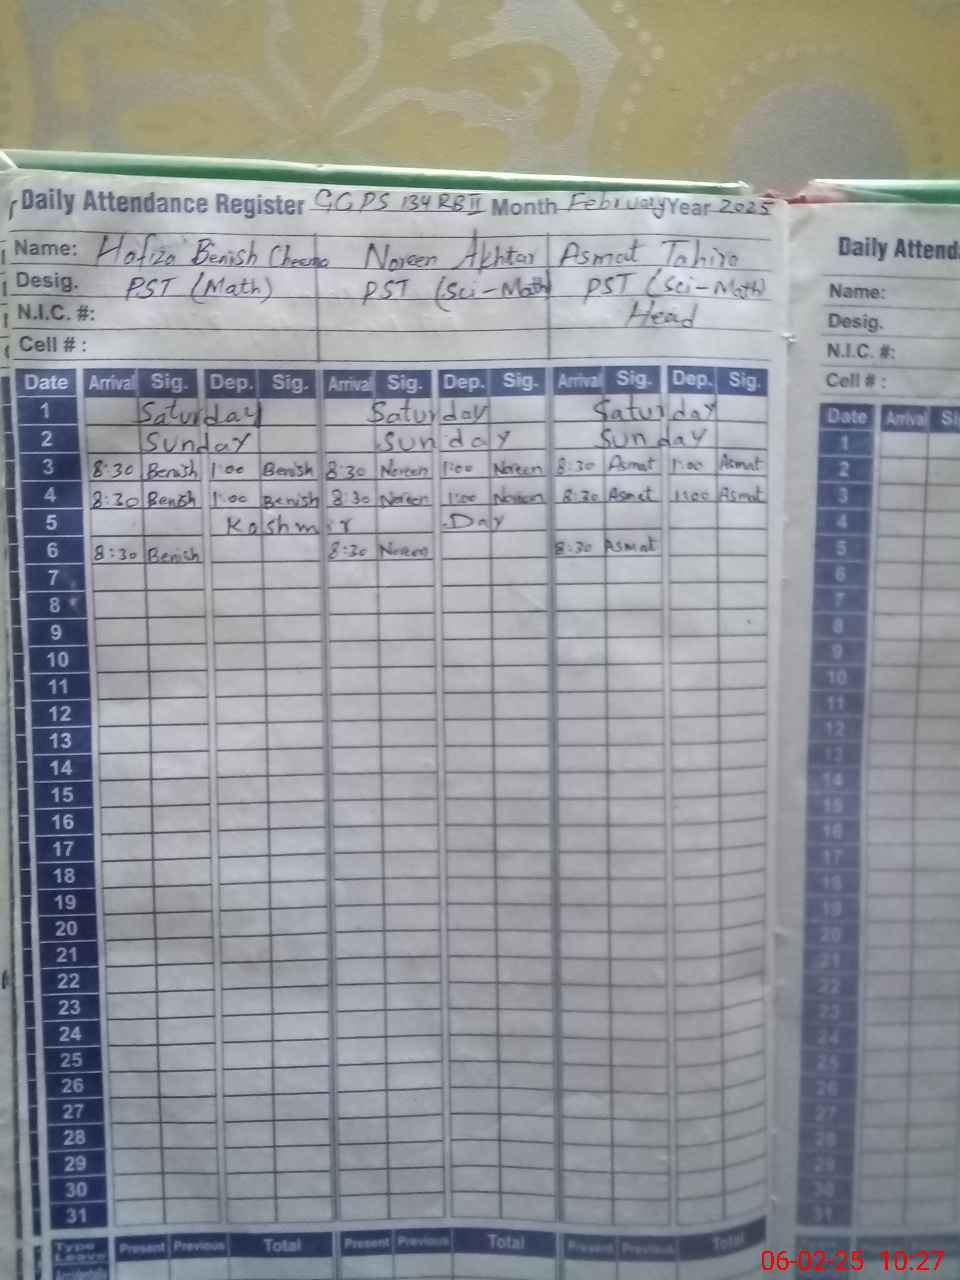 Daily Attendance Register GGPS 134 RB II Month February Year 2025
Name: Hafiza Benish Cheema Noreen Akhtar Asmat Tahira
Desig. PST (Math) PST (Sci-Math) PST (Sci-Math)
N.I.C. #: Head
Cell # :
Date Arrival Sig. Dep. Sig. Arrival Sig. Dep. Sig. Arrival Sig. Dep. Sig.
1 Saturday Saturday Saturday
2 Sunday Sunday Sunday
3 8:30 Benish 1:00 Benish 8:30 Noreen 1:00 Noreen 8:30 Asmat 1:00 Asmat
4 8:30 Benish 1:00 Benish 8:30 Noreen 1:00 Noreen 8:30 Asmat 1:00 Asmat
5 Kashmir Day
6 8:30 Benish 8:30 Noreen 8:30 Asmat
7
8
9
10
11
12
13
14
15
16
17
18
19
20
21
22
23
24
25
26
27
28
29
30
31
Type Leave Present Previous Total Present Previous Total Present Previous Total
Daily Attend
Name:
Desig.
N.I.C. #:
Cell # :
Date Arrival
1
2
3
4
5
6
7
8
9
10
11
12
13
14
15
16
17
18
19
20
21
22
23
24
25
26
27
28
29
30
31
06-02-25 10:27